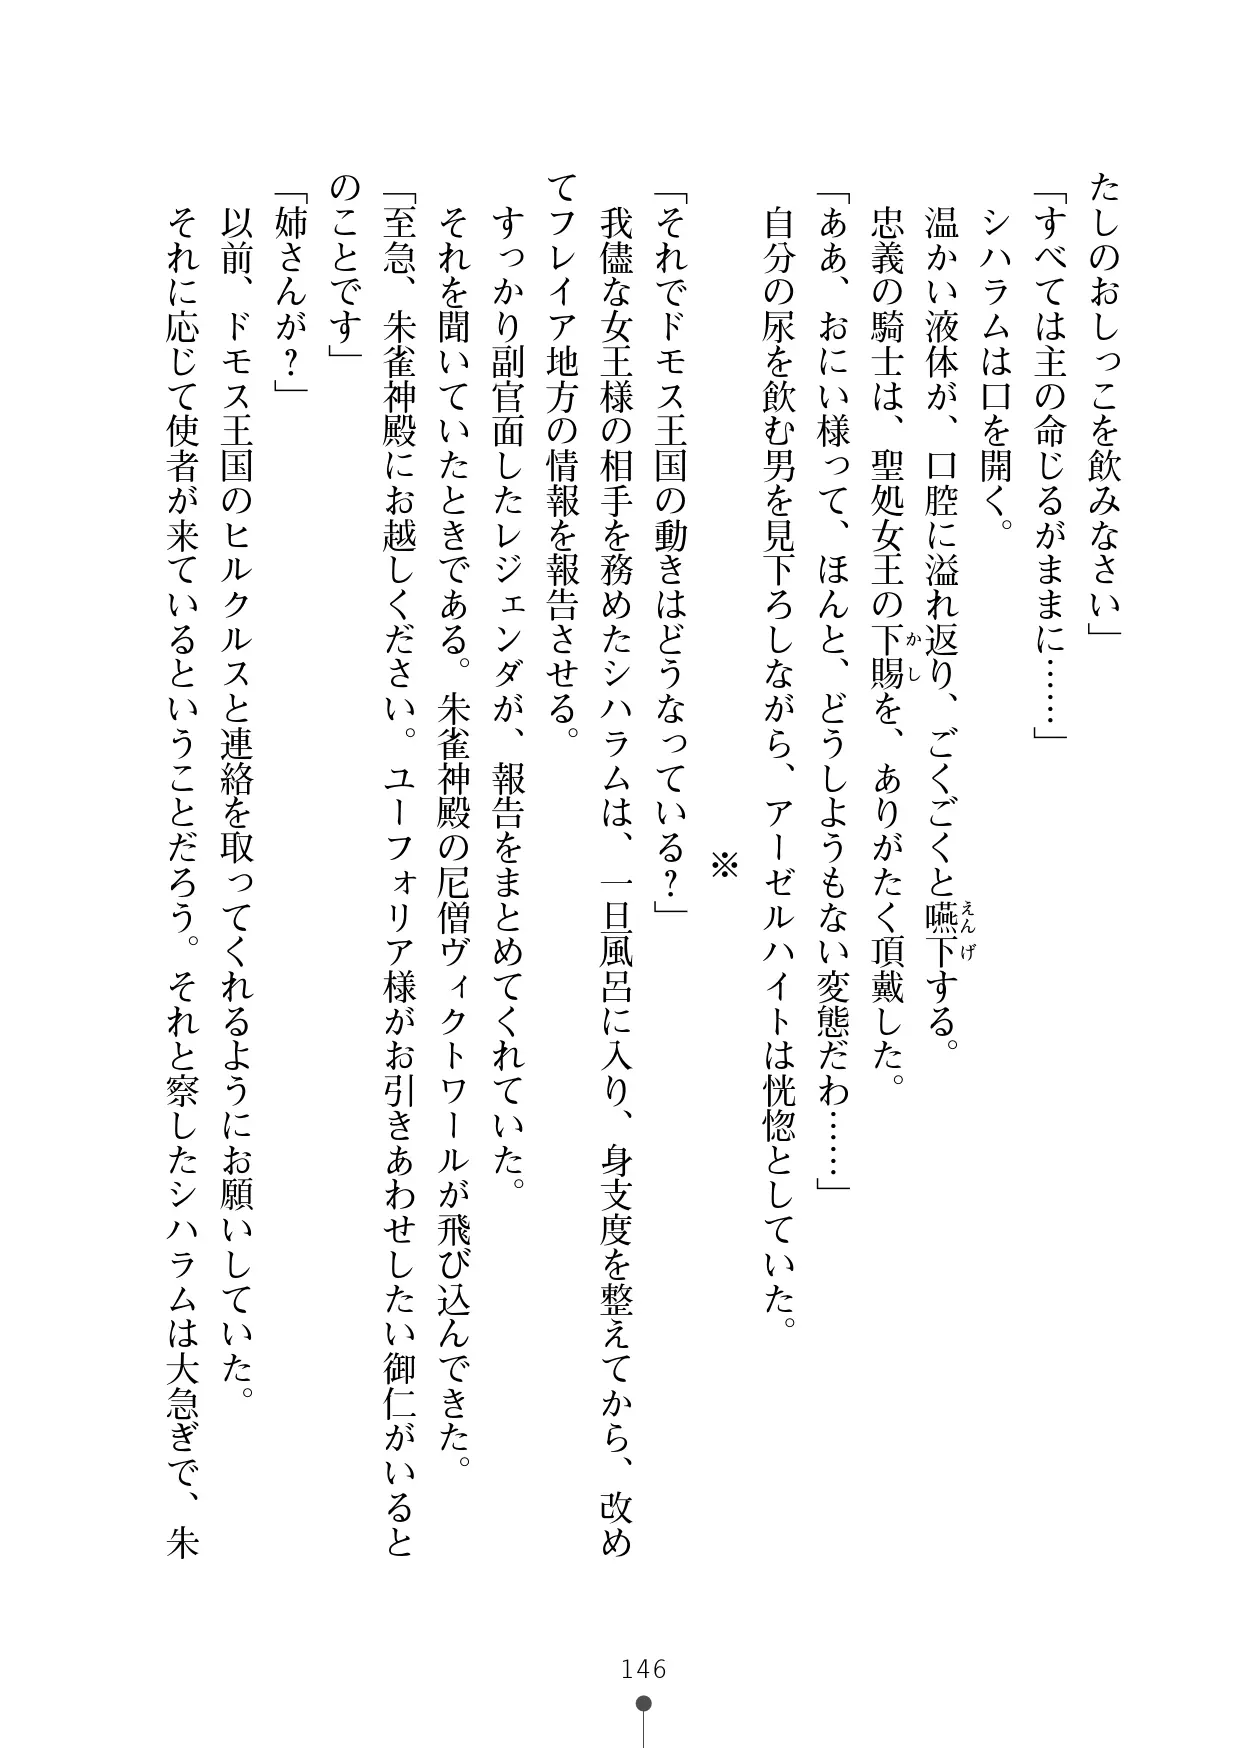 たしのおしっこを飲みなさい」
「すべては主の命じるがままに……」
シハラムは口を開く。
温かい液体が、口腔に溢れ返り、ごくごくと嚥下する。
えんげ
忠義の騎士は、聖処女王の下賜を、ありがたく頂戴した。
かし
「ああ、おにい様って、ほんと、どうしようもない変態だわ……」
自分の尿を飲む男を見下ろしながら、アーゼルハイトは恍惚としていた。
※
「それでドモス王国の動きはどうなっている？」
我儘な女王様の相手を務めたシハラムは、一日風呂に入り、身支度を整えてから、改め
てフレイア地方の情報を報告させる。
すっかり副官面したレジェンダが、報告をまとめてくれていた。
それを聞いていたときである。朱雀神殿の尼僧ヴィクトワールが飛び込んできた。
「至急、朱雀神殿にお越しください。ユーフォリア様がお引きあわせしたい御仁がいると
のことです」
「姉さんが？」
以前、ドモス王国のヒルクルスと連絡を取ってくれるようにお願いしていた。
それに応じて使者が来ているということだろう。それと察したシハラムは大急ぎで、朱
146